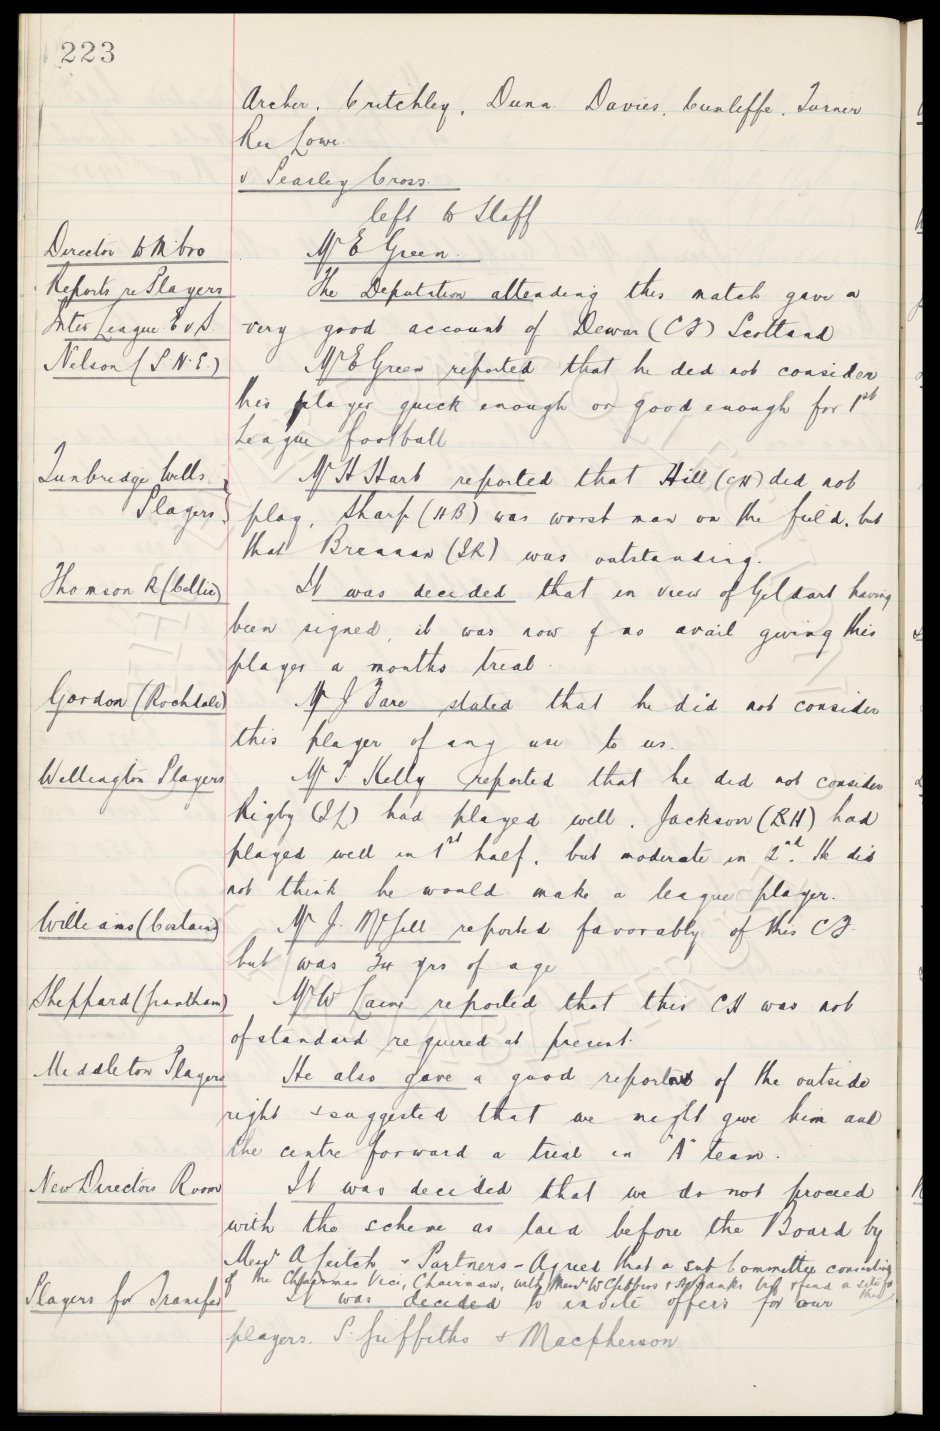 223
Archer, Critchley, Dunn. Davies, Cunliffe, Turner
Rea Lowe.
v Peasley Cross.
left to Staff
Director to M'bro
Mr E Green.
Reports re Players
The Deputation attending this match gave a
Inter League E v S.
very good account of Dewar (CF) Scotland
Nelson (S N. E.)
Mr E Green reported that he did not consider
his player quick enough or good enough for 1st
League football
Tunbridge Wells
Mr H Hart reported that Hill (CH) did not
Players
play, Sharp (HB) was worst man on the field, but
that Brennan (IR) was outstanding.
Thomson R (Celtic)
It was decided that in view of Geldard having
been signed, it was now of no avail giving this
player a months trial.
Gordon (Rochdale)
Mr J Fare stated that he did not consider
this player of any use to us.
Wellington Players
Mr T Kelly reported that he did not consider
Rigby (IL) had played well. Jackson (RH) had
played well in 1st half, but moderate in 2nd. He did
not think he would make a league player.
Williams (Coxtains)
Mr J. McGill reported favorably of this CF.
but was 24 yrs of age
Sheppard (Grantham)
Mr W Sawyer reported that this CH was not
of standard required at present.
Middleton Players
He also gave a good report of the outside
right & suggested that we might give him and
the centre forward a trial in "A" team.
New Directors Room
It was decided that we do not proceed
with the scheme as laid before the Board by
Messrs A Leitch & Partners - Agreed that a sub Committee consisting
of the Chairman Vice, Chairman, with Messrs W C Gibbins & Banks try & find a site for this
Players for Transfer
It was decided to invite offers for our
players. P. Griffiths & Macpherson